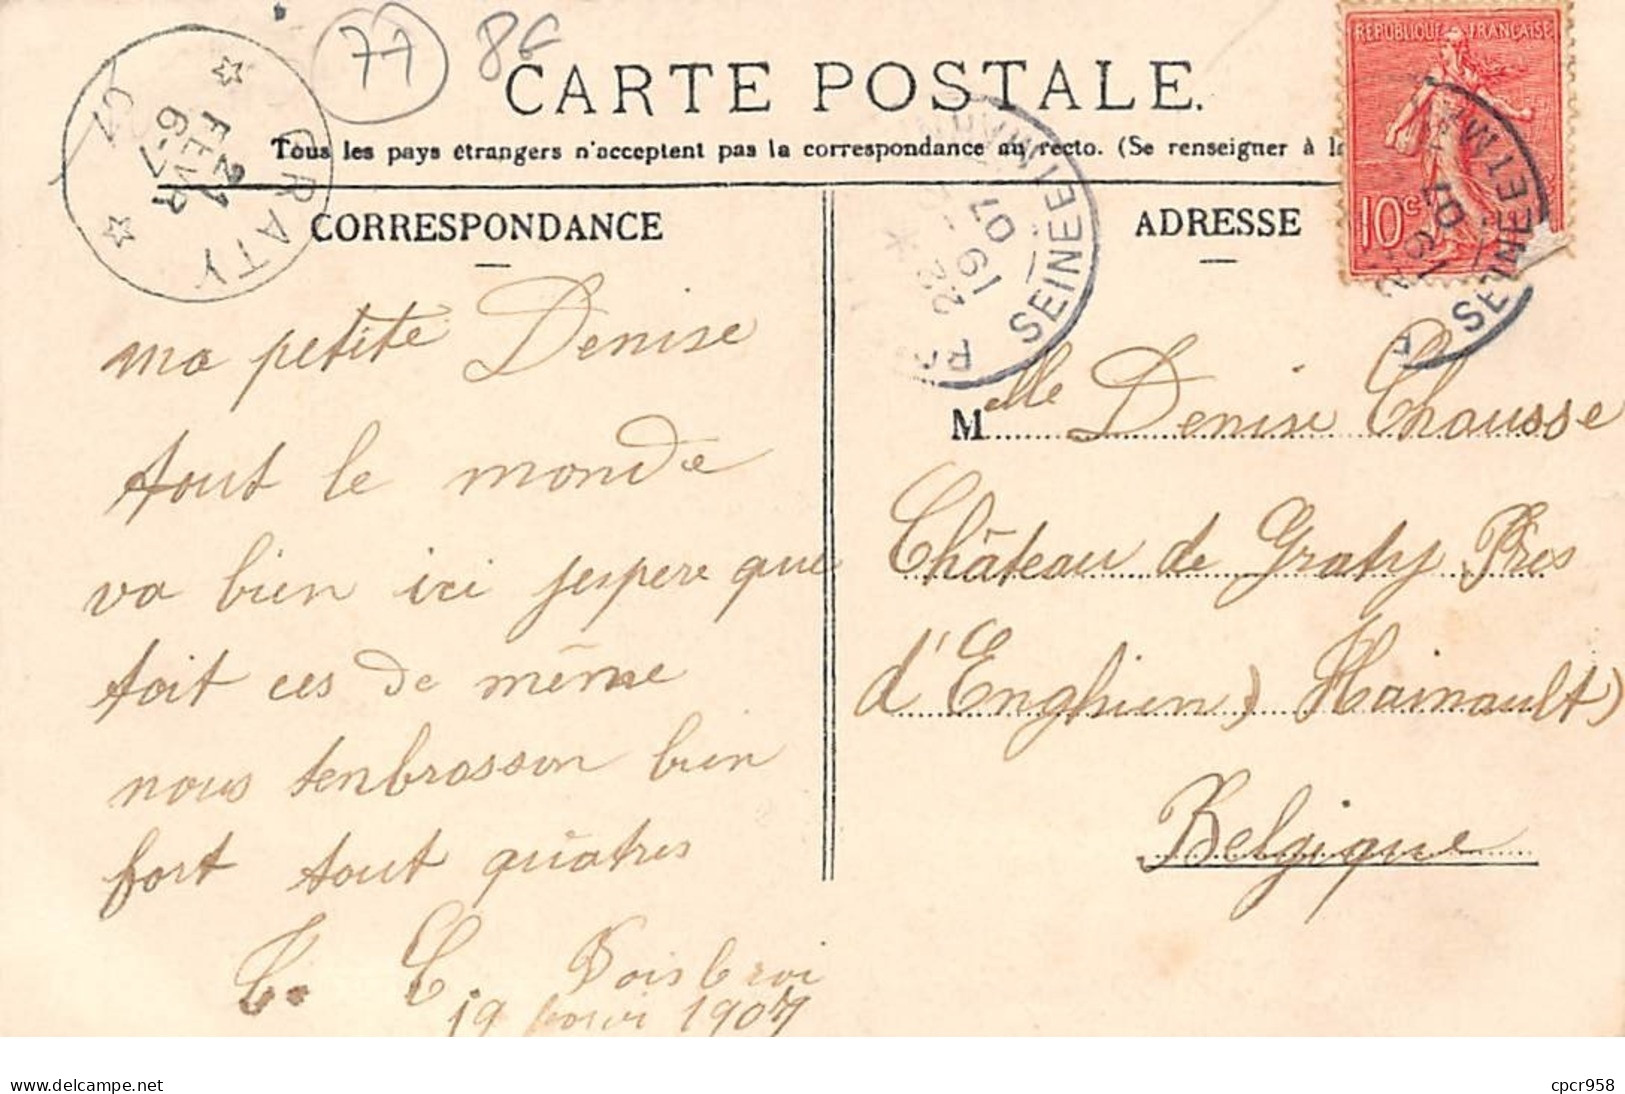 77
8f
CARTE POSTALE.
Tous les pays étrangers n'acceptent pas la correspondance au recto. (Se renseigner à la
REPUBLIQUE FRANÇAISE
10c
GRATY
21
FEVR
6-7
07
SEINE ET M
19
07
SEINE ET M
22
19
07
CORRESPONDANCE
ma petite Denise
tout le monde
va bien ici jespere que
toit ces de même
nous tenbrasson bien
fort tout quatres
19 1907
ADRESSE
Melle Denise Chausse
Château de Graty Près
d'Enghien) Hainault)
Belgique
delcampe.net
cpcr958